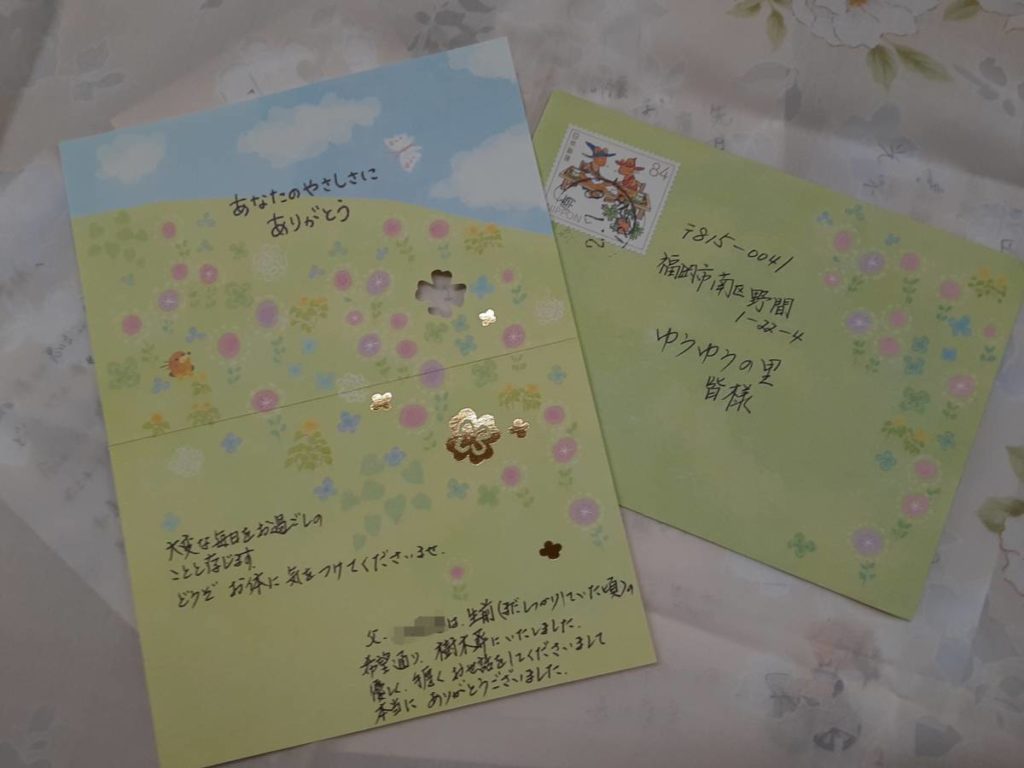 あなたのやさしさに
ありがとう
大変な毎日をお過ごしの
ことと存じます
どうぞ お体に気をつけてくださいませ.
父、は、生前(まだしっかりしていた頃)の
希望通り、樹木葬にいたしました.
優しく、手厚く お世話をしてくださいまして
本当に ありがとうございました.
日本郵便
84
NIPPON
〒815-0041
福岡市南区野間
1-22-4
ゆうゆうの里
皆様